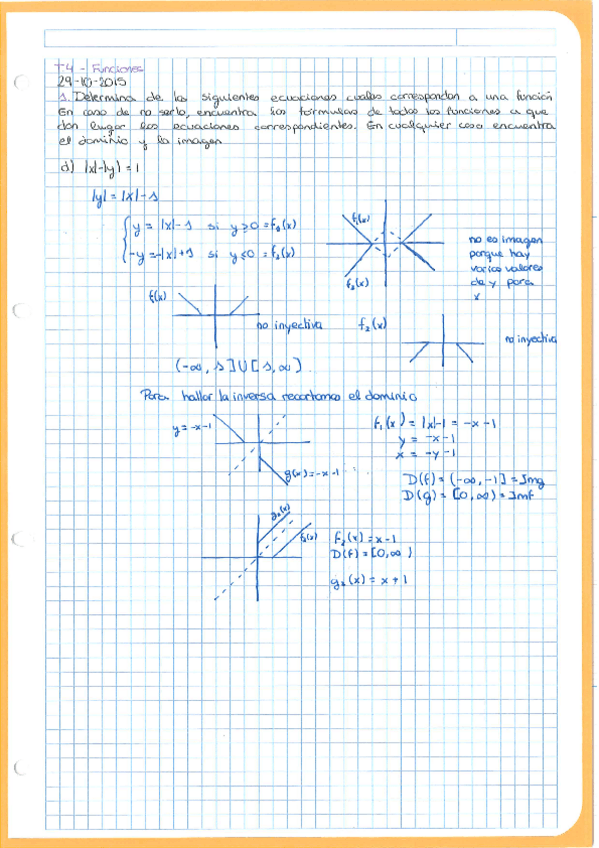 T4 - Funciones
29-10-2015
1. Determina de las siguientes ecuaciones cuales correspondon a una función
En caso de no serlo, encuentra las fórmulas de todas las funciones a que
dan lugar las ecuaciones correspondientes. En cualquier caso encuentra
el dominio y la imagen
d) |x|-|y| = 1
|y| = |x| - 1
y = |x| - 1 si y ≥ 0 = f₁(x)
-y = -|x| + 1 si y ≤ 0 = f₂(x)
f₁(x)
f₂(x)
no es imagen
porque hay
varios valores
de y para
x
f₁(x)
no inyectiva
f₂(x)
no inyectiva
(-∞, 1] ∪ [1, ∞).
Para hallar la inversa recortamos el dominio
y = -x-1
g(x) = -x-1
f₁(x) = |x|-1 = -x-1
y = -x-1
x = -y-1
D(f) = (-∞, -1] = Img
D(g) = [0, ∞) = Imf
g₂(x)
f₂(x)
f₂(x) = x-1
D(f) = [0, ∞)
g₂(x) = x + 1